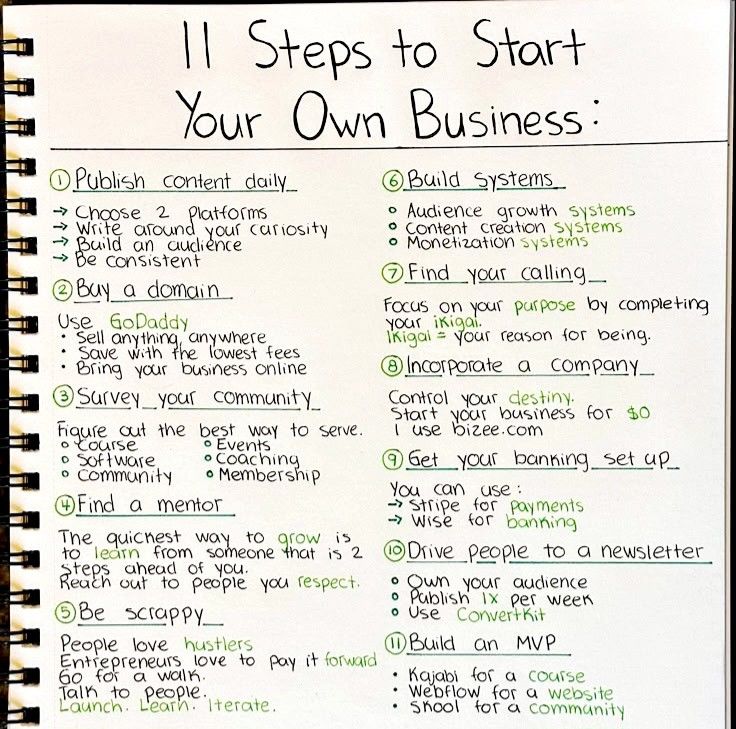 11 Steps to Start
Your Own Business:
1 Publish content daily
→ Choose 2 Platforms
→ Write around your curiosity
→ Build an audience
→ Be consistent
2 Buy a domain
Use GoDaddy
• Sell anything, anywhere
• Save with the lowest fees
• Bring your business online
3 Survey your community
Figure out the best way to serve.
○ Course ○ Events
○ Software ○ Coaching
○ Community ○ Membership
4 Find a mentor
The quickest way to grow is
to learn from someone that is 2
steps ahead of you.
Reach out to people you respect.
5 Be scrappy
People love hustlers
Entrepreneurs love to pay it forward
Go for a walk.
Talk to people.
Launch. Learn. Iterate.
6 Build systems
○ Audience growth systems
○ Content creation systems
○ Monetization systems
7 Find your calling
Focus on your purpose by completing
your iKigai.
iKigai = your reason for being.
8 Incorporate a company
Control your destiny.
Start your business for $0
I use bizee.com
9 Get your banking set up
You can use:
→ Stripe for payments
→ Wise for banking
10 Drive people to a newsletter
○ Own your audience
○ Publish 1x per week
○ Use ConvertKit
11 Build an MVP
• Kajabi for a course
• Webflow for a website
• Skool for a community